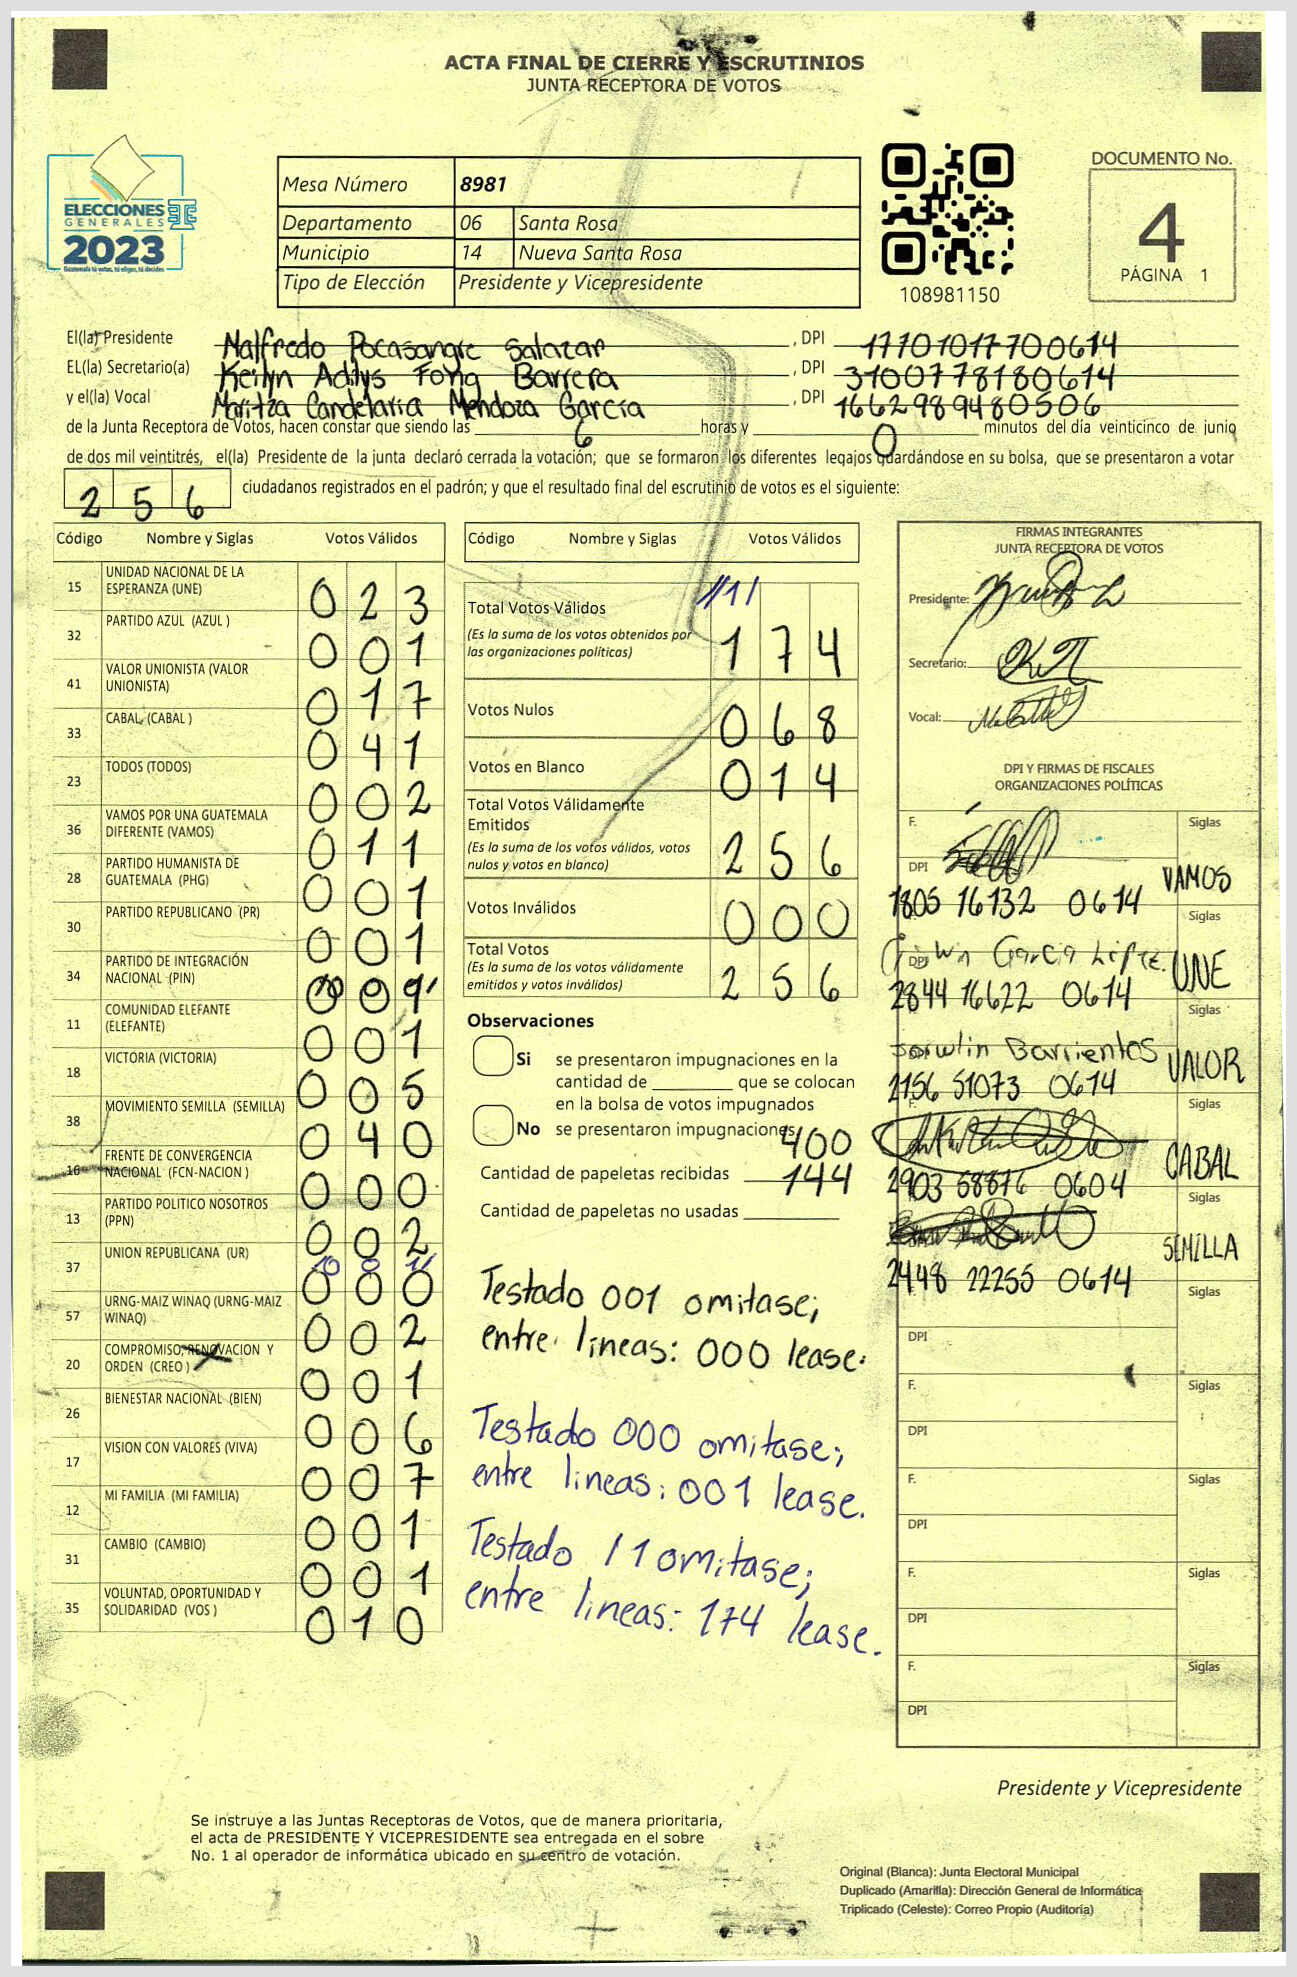 ACTA FINAL DE CIERRE Y ESCRUTINIOS
JUNTA RECEPTORA DE VOTOS
ELECCIONES
GENERALES
2023
Guatemala tú votas, tú eliges, tú decides
Mesa Número 8981
Departamento 06 Santa Rosa
Municipio 14 Nueva Santa Rosa
Tipo de Elección Presidente y Vicepresidente
108981150
DOCUMENTO No.
4
PÁGINA 1
El(la) Presidente Nalfredo Pocasangre Salazar, DPI 17701017700614
EL(la) Secretario(a) Keilyn Adilys Fong Barrera, DPI 3100778180614
y el(la) Vocal Maritza Candelaria Mendoza García, DPI 1662989480506
de la Junta Receptora de Votos, hacen constar que siendo las 6 horas y 0 minutos del día veinticinco de junio
de dos mil veintitrés, el(la) Presidente de la junta declaró cerrada la votación; que se formaron los diferentes legajos guardándose en su bolsa, que se presentaron a votar
2 5 6 ciudadanos registrados en el padrón; y que el resultado final del escrutinio de votos es el siguiente:
Código Nombre y Siglas Votos Válidos
15 UNIDAD NACIONAL DE LA ESPERANZA (UNE) 0 2 3
32 PARTIDO AZUL (AZUL ) 0 0 1
41 VALOR UNIONISTA (VALOR UNIONISTA) 0 1 7
33 CABAL (CABAL ) 0 4 1
23 TODOS (TODOS) 0 0 2
36 VAMOS POR UNA GUATEMALA DIFERENTE (VAMOS) 0 1 1
28 PARTIDO HUMANISTA DE GUATEMALA (PHG) 0 0 1
30 PARTIDO REPUBLICANO (PR) 0 0 1
34 PARTIDO DE INTEGRACIÓN NACIONAL (PIN) 0 0
11 COMUNIDAD ELEFANTE (ELEFANTE) 0 0 1
18 VICTORIA (VICTORIA) 0 0 5
38 MOVIMIENTO SEMILLA (SEMILLA) 0 4 0
16 FRENTE DE CONVERGENCIA NACIONAL (FCN-NACION ) 0 0 0
13 PARTIDO POLITICO NOSOTROS (PPN) 0 0 2
37 UNION REPUBLICANA (UR) 0 0 0
57 URNG-MAIZ WINAQ (URNG-MAIZ WINAQ) 0 0 2
20 COMPROMISO, RENOVACION Y ORDEN (CREO ) 0 0 1
26 BIENESTAR NACIONAL (BIEN) 0 0 6
17 VISION CON VALORES (VIVA) 0 0 7
12 MI FAMILIA (MI FAMILIA) 0 0 1
31 CAMBIO (CAMBIO) 0 0 1
35 VOLUNTAD, OPORTUNIDAD Y SOLIDARIDAD (VOS ) 0 1 0
Código Nombre y Siglas Votos Válidos
Total Votos Válidos
(Es la suma de los votos obtenidos por
las organizaciones políticas) 1 7 4
Votos Nulos 0 6 8
Votos en Blanco 0 1 4
Total Votos Válidamente
Emitidos
(Es la suma de los votos válidos, votos
nulos y votos en blanco) 2 5 6
Votos Inválidos 0 0 0
Total Votos
(Es la suma de los votos válidamente
emitidos y votos inválidos) 2 5 6
Observaciones
Si se presentaron impugnaciones en la
cantidad de ________ que se colocan
en la bolsa de votos impugnados
No se presentaron impugnaciones
Cantidad de papeletas recibidas 400
Cantidad de papeletas no usadas 144
Testado 001 omitase;
entre lineas: 000 lease.
Testado 000 omitase;
entre lineas: 001 lease.
Testado 11 omitase;
entre lineas: 174 lease.
FIRMAS INTEGRANTES
JUNTA RECEPTORA DE VOTOS
Presidente:
Secretario:
Vocal:
DPI Y FIRMAS DE FISCALES
ORGANIZACIONES POLÍTICAS
F. Siglas
DPI 1805 16132 0614 VAMOS
Siglas
García López UNE
2844 16622 0614
Siglas
Barrientos VALOR
2156 51073 0614
F. Siglas
CABAL
2903 58876 0604
Siglas
SEMILLA
2448 22255 0614
Siglas
DPI
F. Siglas
DPI
F. Siglas
DPI
F. Siglas
DPI
F. Siglas
DPI
Presidente y Vicepresidente
Se instruye a las Juntas Receptoras de Votos, que de manera prioritaria,
el acta de PRESIDENTE Y VICEPRESIDENTE sea entregada en el sobre
No. 1 al operador de informática ubicado en su centro de votación.
Original (Blanca): Junta Electoral Municipal
Duplicado (Amarilla): Dirección General de Informática
Triplicado (Celeste): Correo Propio (Auditoria)